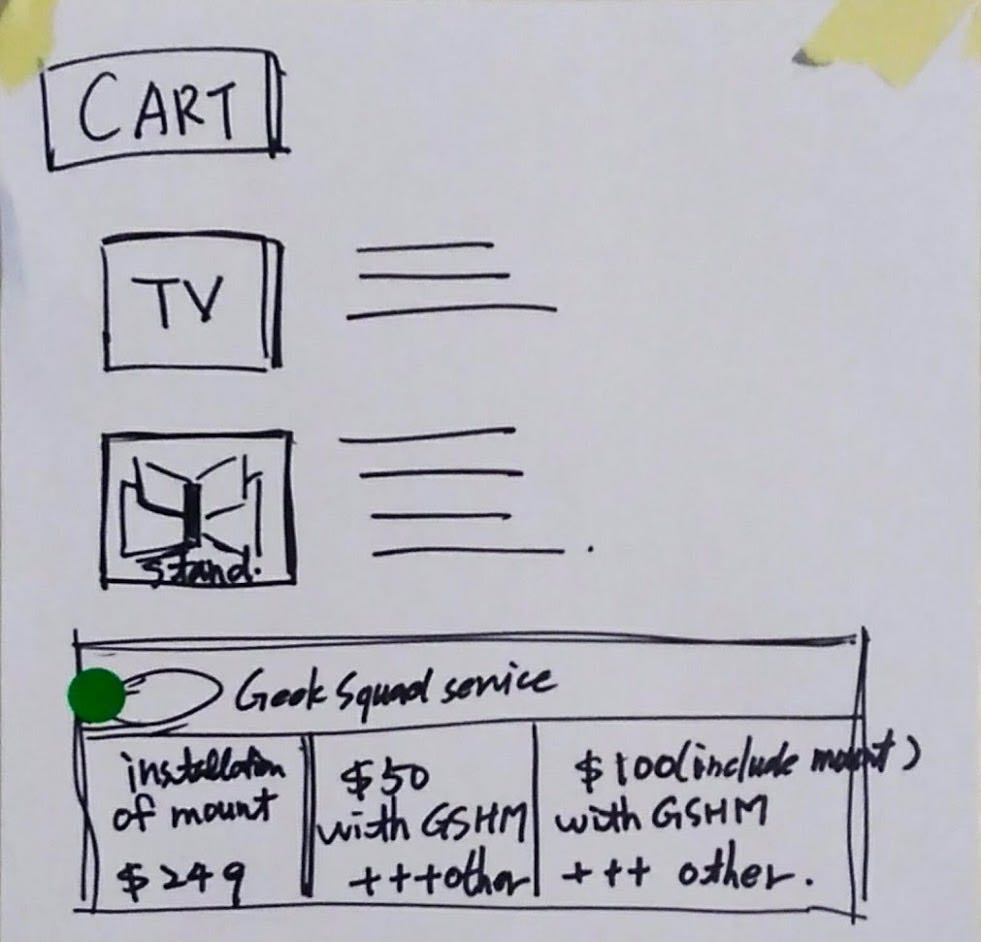 CART
TV
Stand.
Geek Squad service
installation
of mount
$249
$50
with GSHM
+++other
$100(include mount)
with GSHM
+++ other.